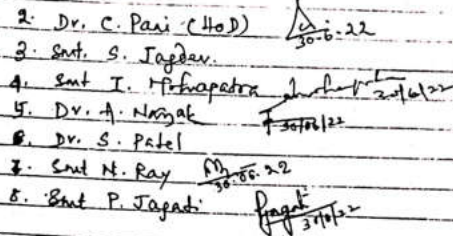 2. Dr. C. Pani (HoD) 30-6-22
3. Smt. S. Jagdev.
4. Smt I. Mohapatra 30/6/22
5. Dr. A. Nayak 30/06/22
6. Dr. S. Patel
7. Smt N. Ray 30.06.22
8. Smt P. Jagati 30/6/22